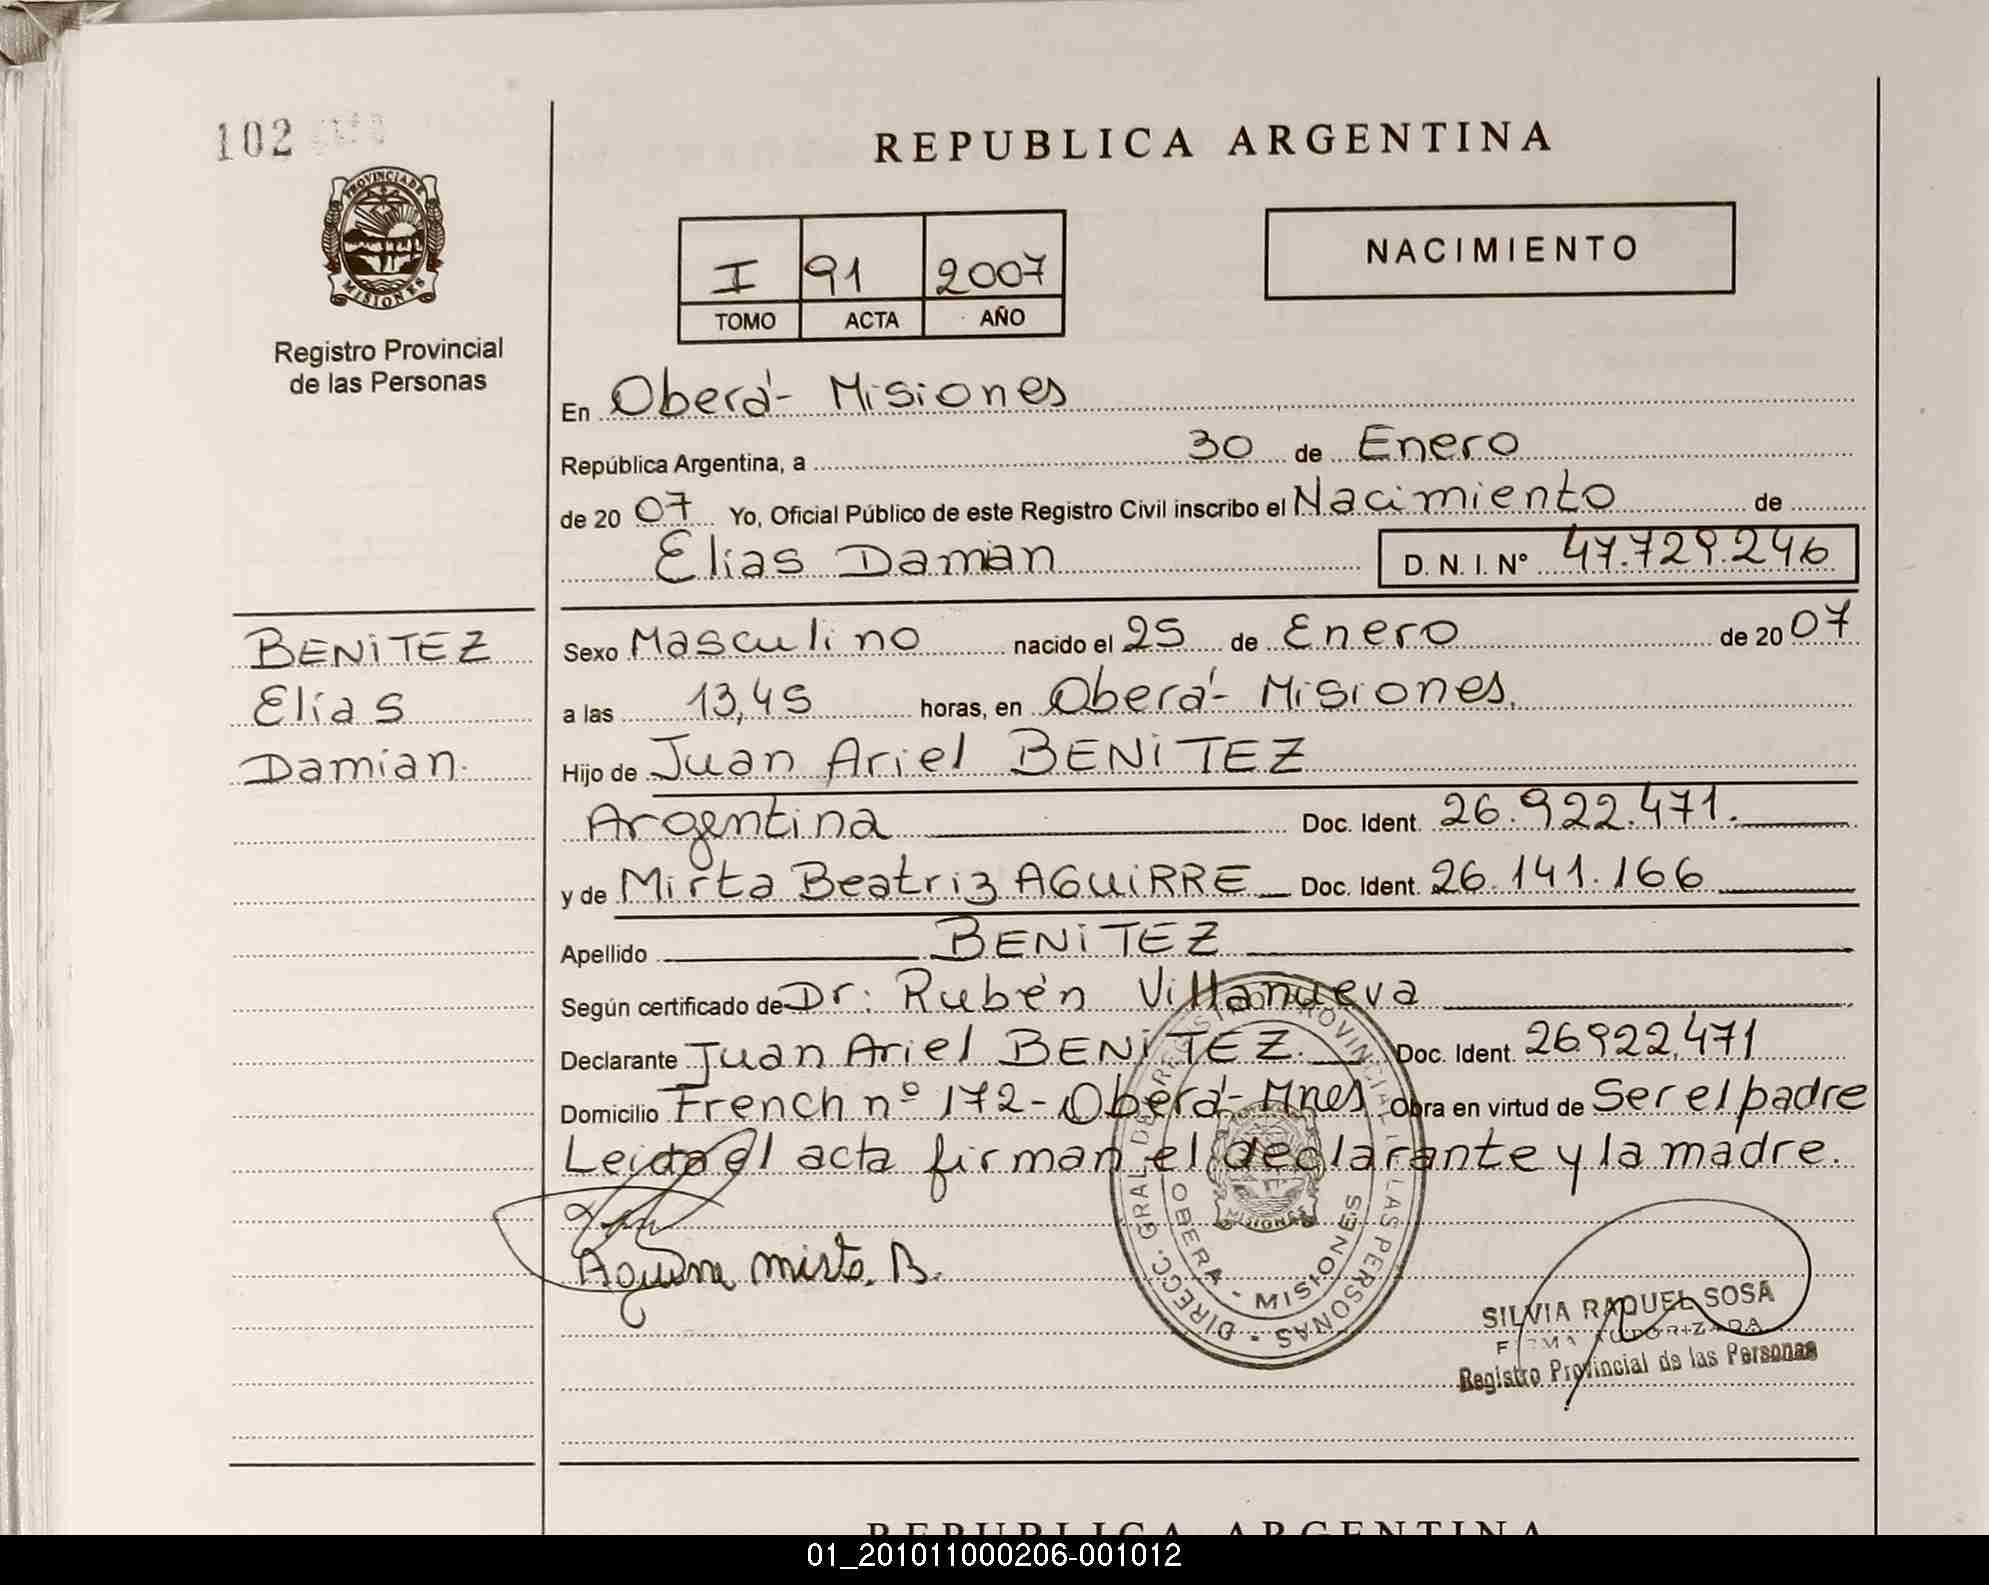 102
PROVINCIA DE
MISIONES
Registro Provincial
de las Personas
BENITEZ
Elias
Damian.
REPUBLICA ARGENTINA
I 91 2007
TOMO ACTA AÑO
NACIMIENTO
En Oberá - Misiones
República Argentina, a 30 de Enero
de 2007 Yo, Oficial Público de este Registro Civil inscribo el Nacimiento de
Elias Damian D. N. I. Nº 47.729.246
Sexo Masculino nacido el 25 de Enero de 2007
a las 13,45 horas, en Oberá - Misiones.
Hijo de Juan Ariel BENITEZ
Argentina Doc. Ident. 26.922.471.
y de Mirta Beatriz AGUIRRE Doc. Ident. 26.141.166
Apellido BENITEZ
Según certificado de Dr: Rubén Villanueva
Declarante Juan Ariel BENITEZ. Doc. Ident. 26922.471
Domicilio French nº 172 - Oberá - Mnes obra en virtud de Ser el padre
Leida el acta firman el declarante y la madre.
Mirta. B.
DIRECC. GRAL DE REGISTRO PROVINCIAL DE LAS PERSONAS
OBERA - MISIONES
MISIONES
SILVIA RAQUEL SOSA
FIRMA AUTORIZADA
Registro Provincial de las Personas
REPUBLICA ARGENTINA
01_201011000206-001012